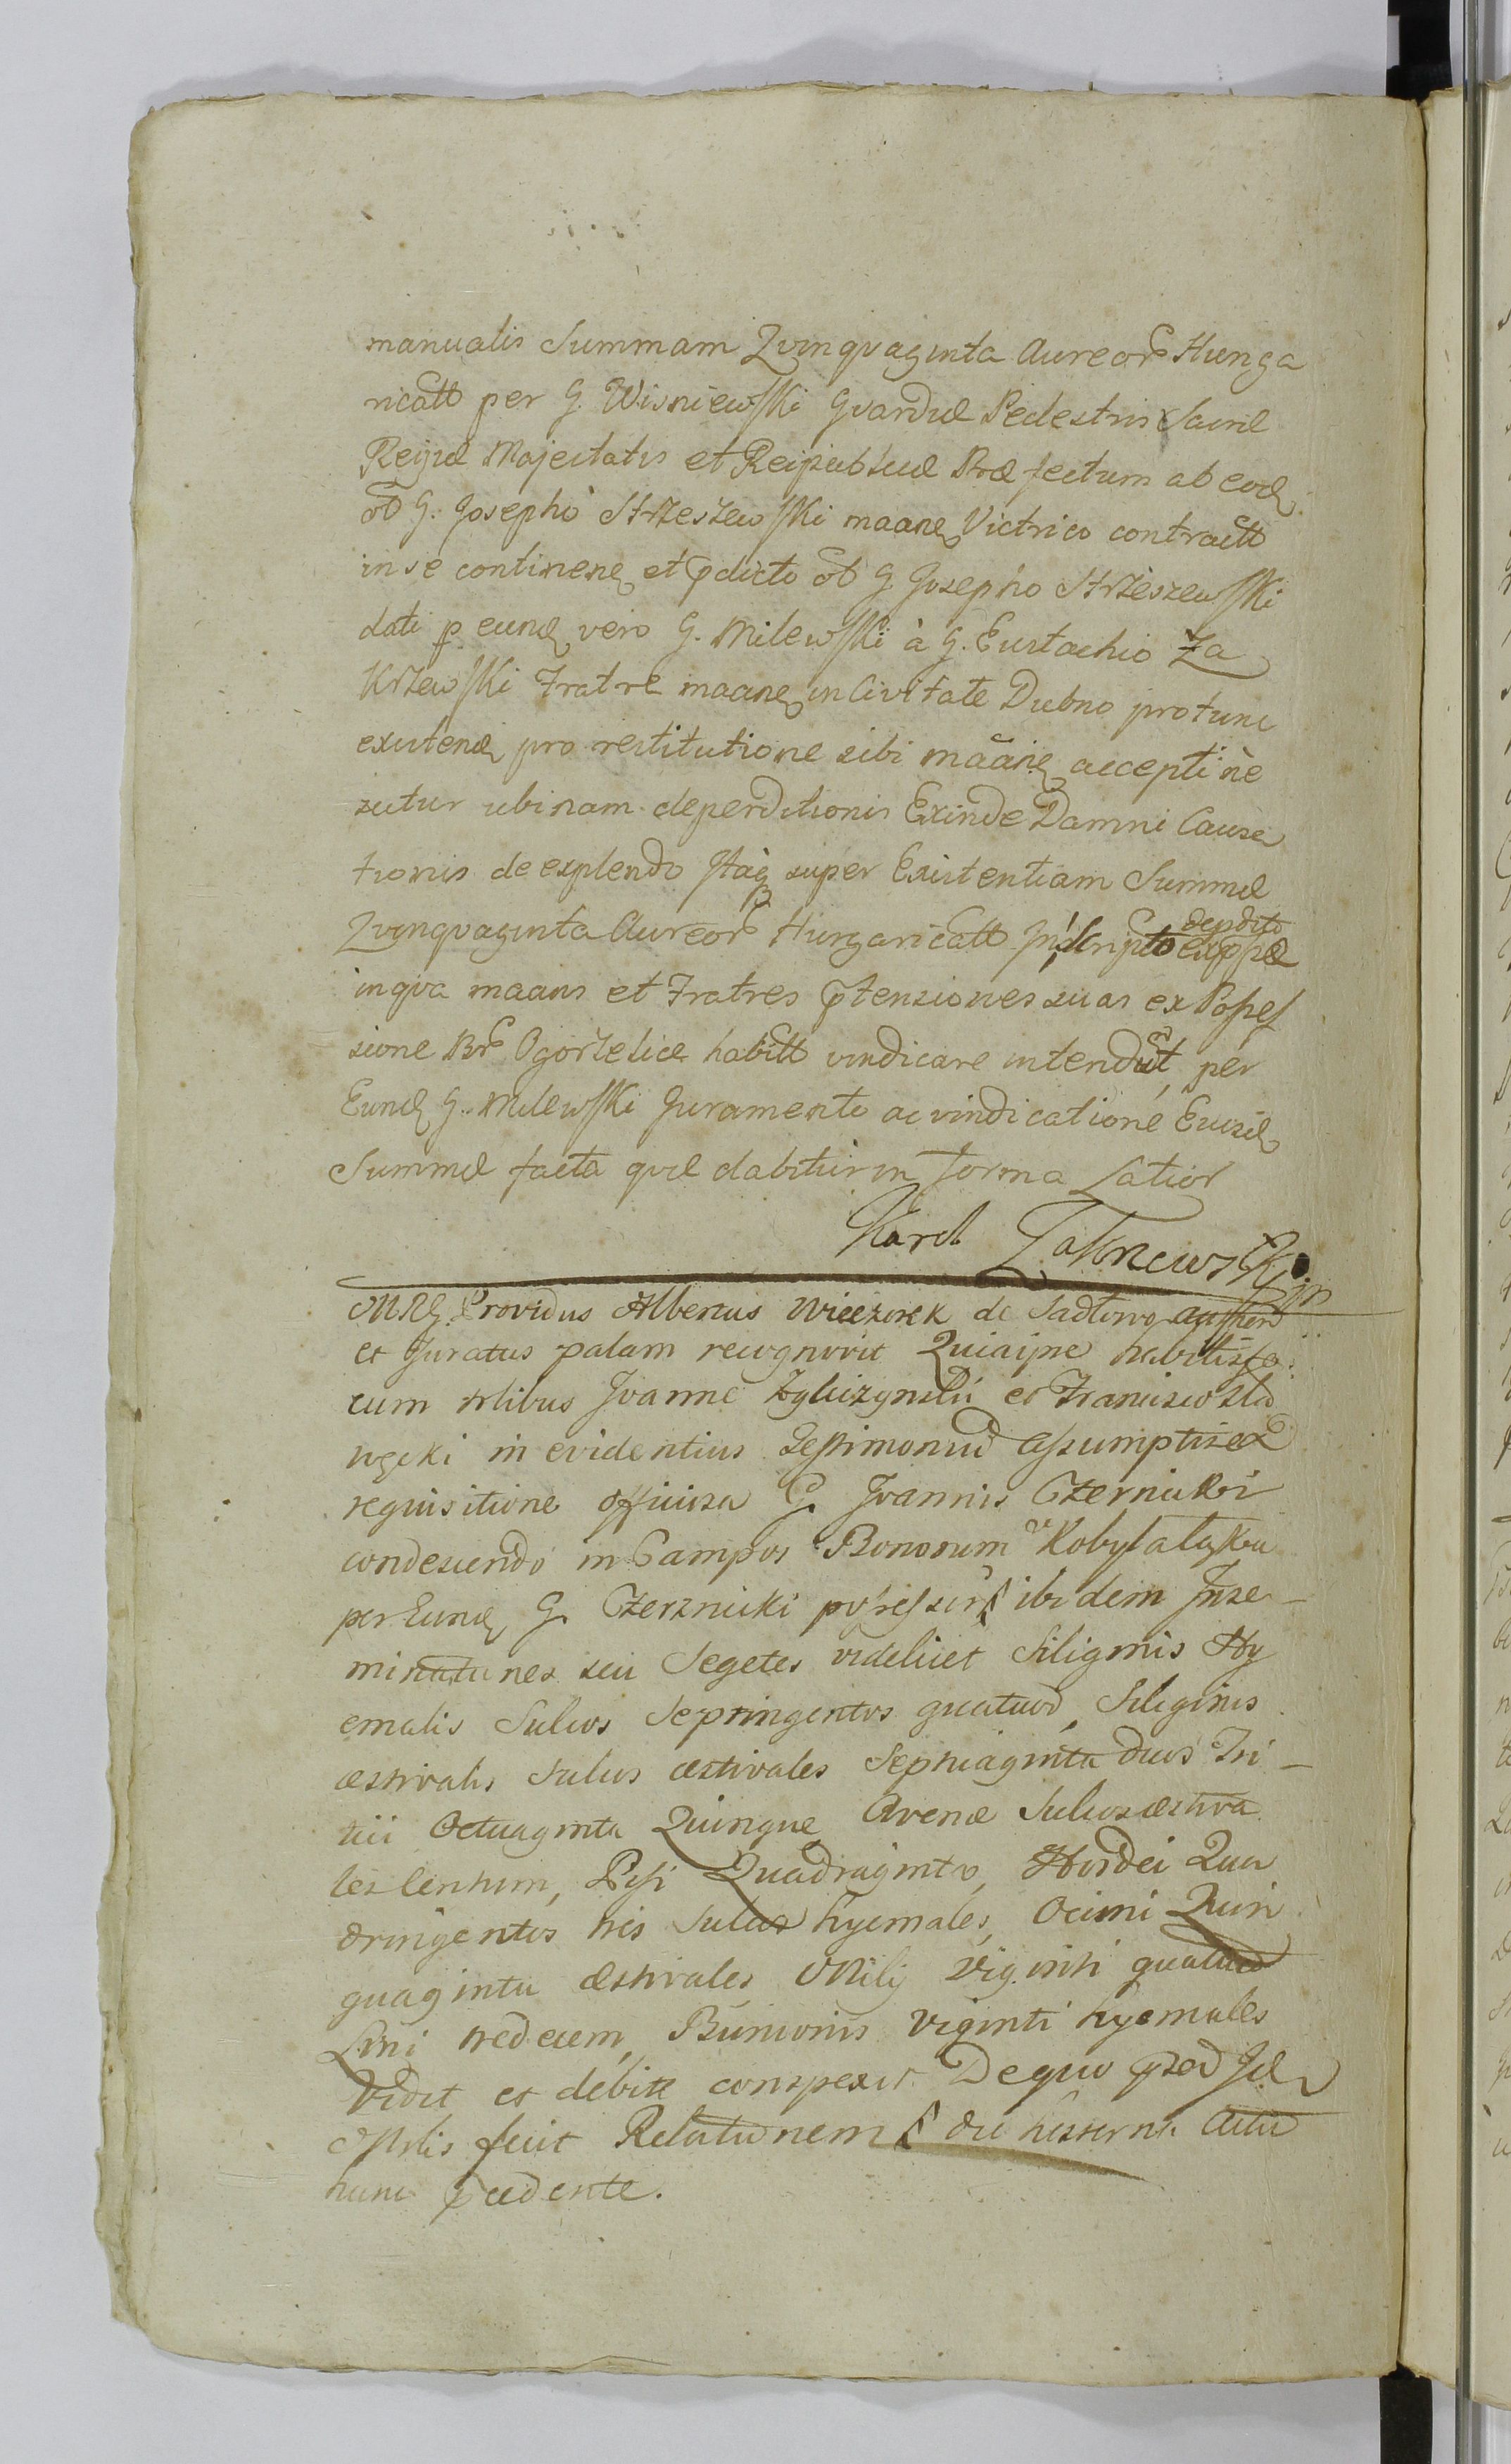 manualis Summam Qvinqvaginta Aureor Hunga
ricall per G. Wisniewski Gvardiæ Pedestris Sacræ
Regiæ Majestatis et Reipublicæ Præfectum ab eod
ob G. Josepho Strzeszewski maane Victrico contract
in se continene et pdicto ob G Josepho Strzeszewski
dati p eund vero G. Milewski à G. Eustachio Za
Krzewski Fratre maane in Civitate Dubno protunc
existend pro restitutione sibi maane accepti nè
scitur ubinam deperditionis Exinde Damni Causa
tionis de explendo super Existentiam Summæ
Qvinqvaginta Aureor Hungaricall Scripto
in qva maans et Fratres ptensiones suas ex Posses
sione Br Ogorzelice habitt vindicare intendut per
Eund G. Milewski Juramento ac vindicatione
Summæ facta qvæ dabitur in Forma Latior
Karol
Providus Albertus Wieczorek de Sadlowo
et Juratus palam recognovit Quia ipse habitis
cum Nlibus Joanne et Francisco
in evidentius Testimoniu assumptis ex
requisitione officiosa G. Joannis Czernicki
condescendo in Campos Bonorum Kobyla
per Eund G. Czernicki ibidem Inse-
minationes seu Segetes videlicet Siliginis Hy
emalis Sulcos Septingentos quatuor, Siliginis
æstivalis Sulcos æstivales Septuaginta duos Tri-
tici Octuaginta Quinque Avenæ Sulcos æstiva
les Centum, Pisi Quadraginta, Hordei Qua
dringentos tris Sulcos hyemales, Ocimi Quin
quaginta æstivales Milij viginti quatuor
Lini tredecem, Bunionis viginti hyemales
Vidit et debite conspexit. De quo
fecit Relationem die hesterna Actu
hunc pcedente.